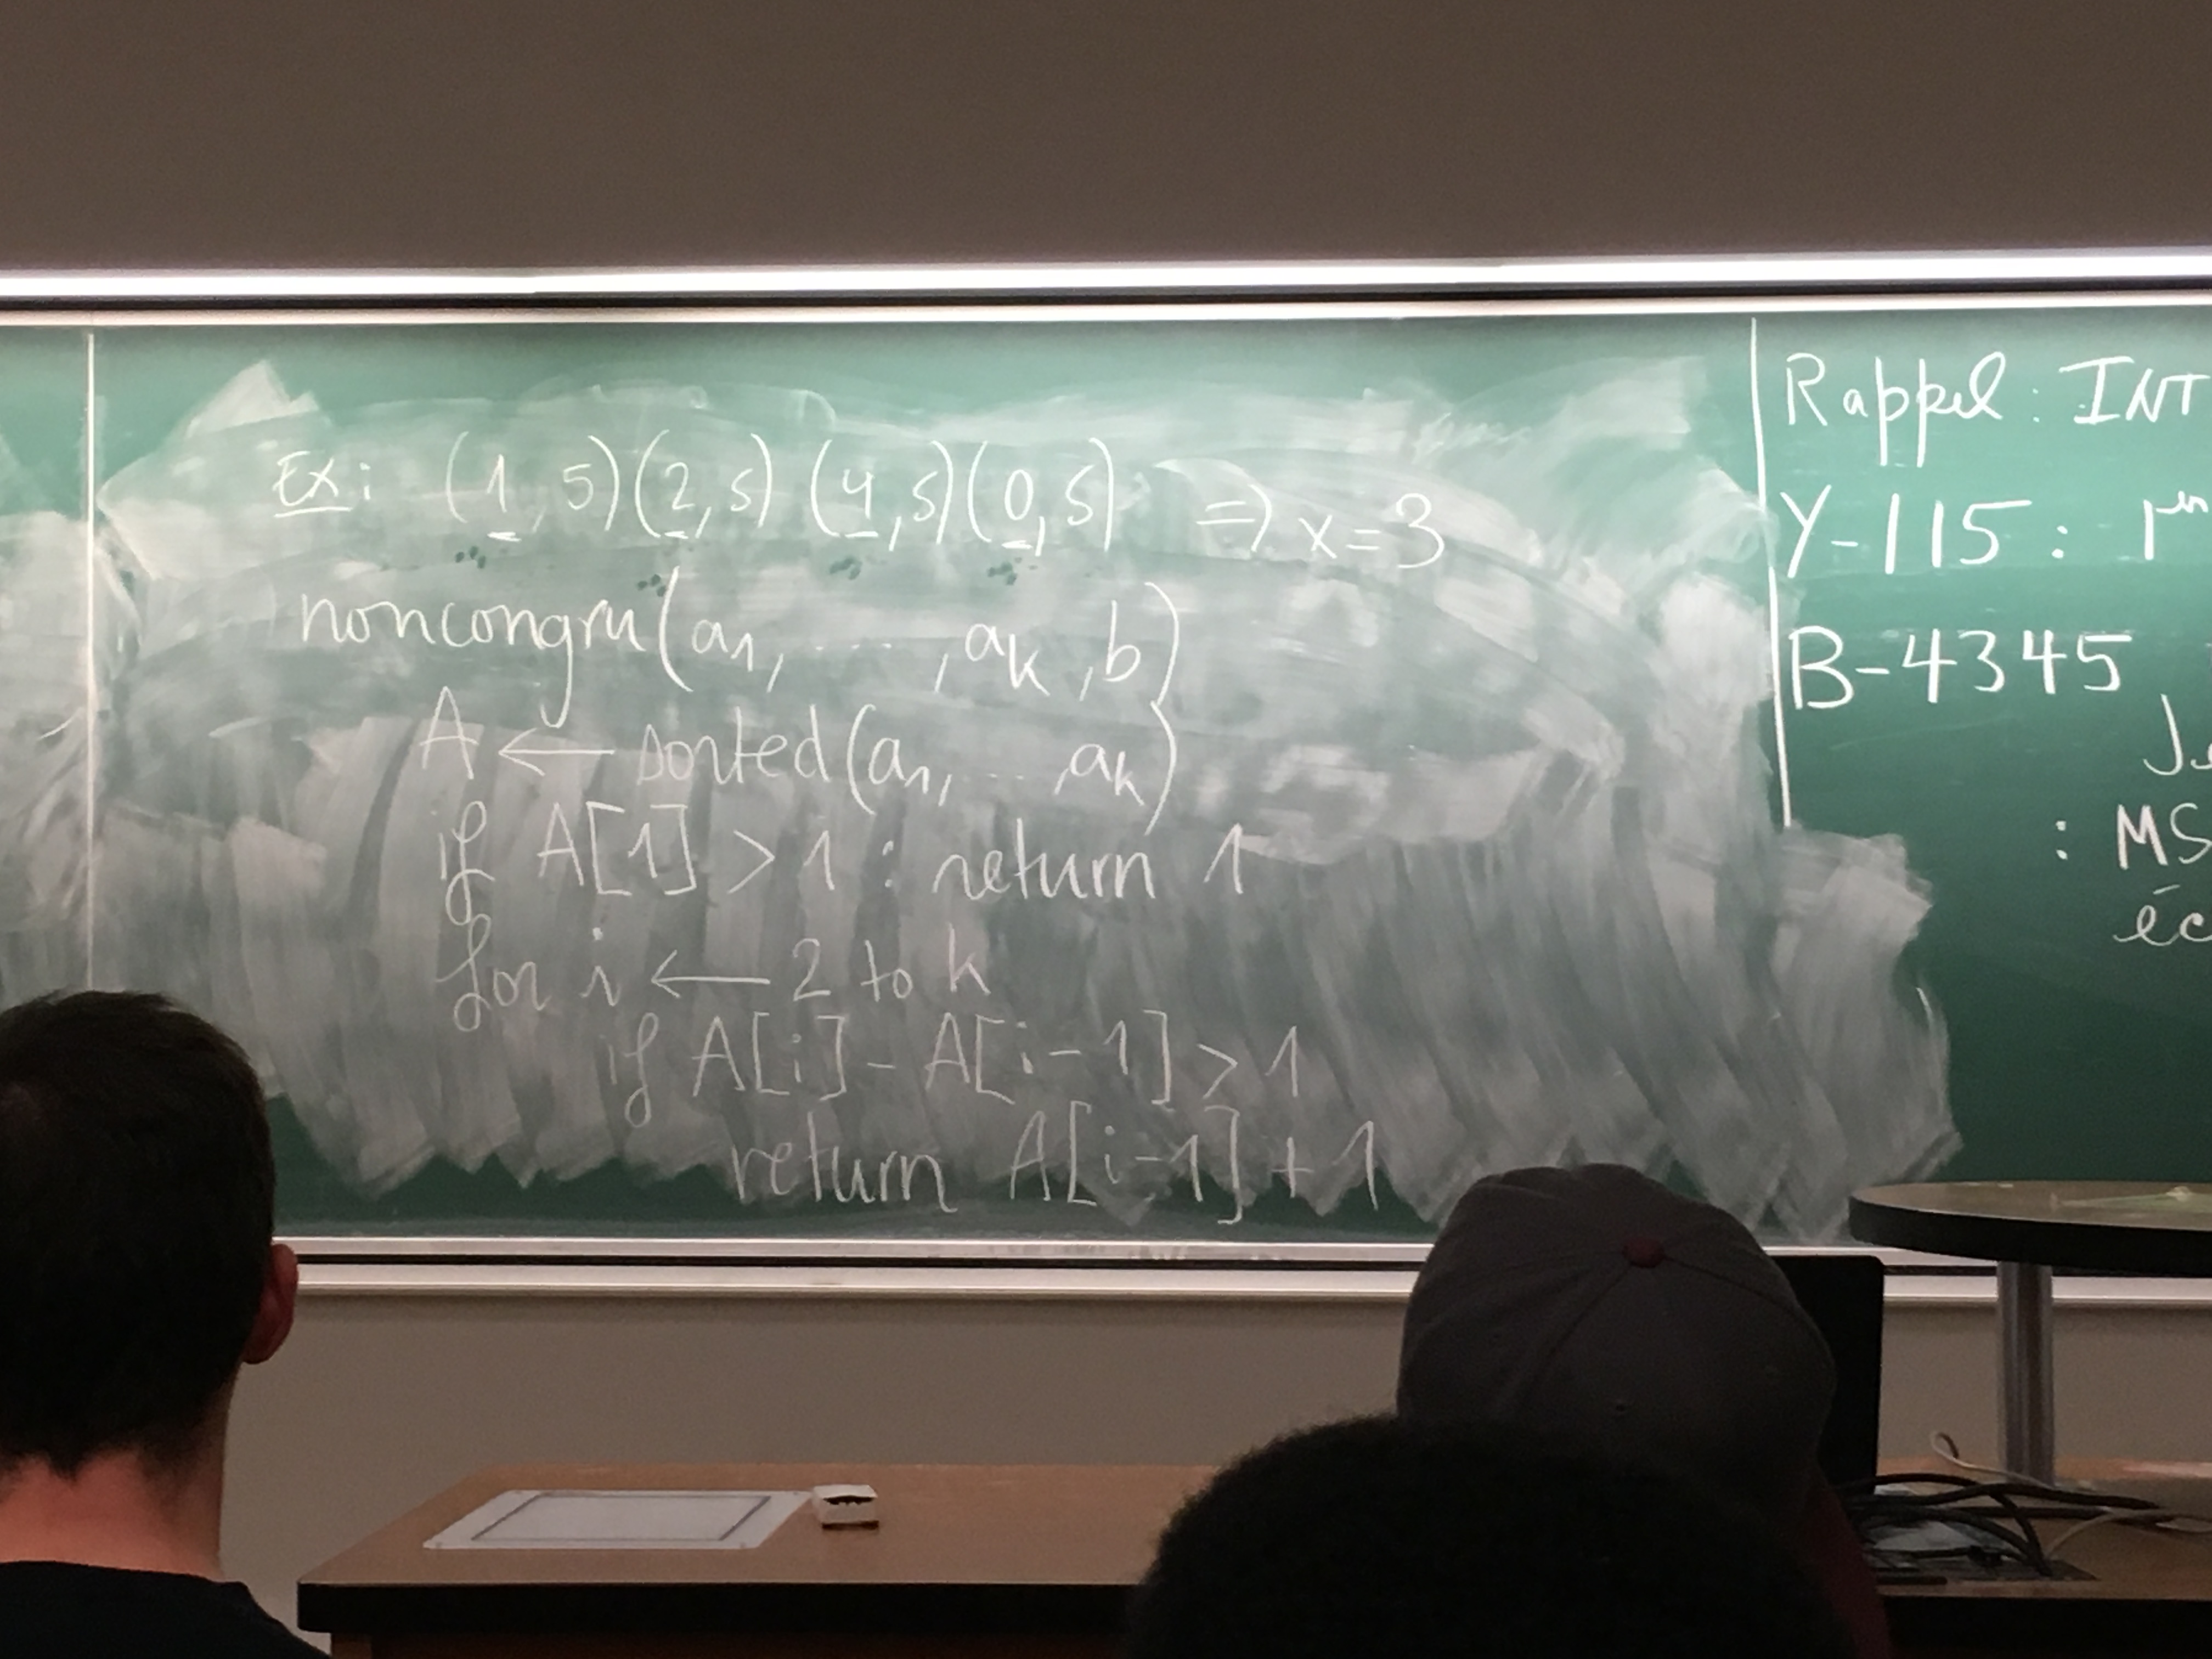 Ex: (1, 5)(2, 5) (4, 5)(0, 5) => x=3
noncongru(a1, ... , ak, b)
A ← sorted(a1, ... , ak)
if A[1] > 1 : return 1
for i ← 2 to k
if A[i] - A[i-1] > 1
return A[i-1] + 1
Rappel : INT
Y-115 :
B-4345
: MS